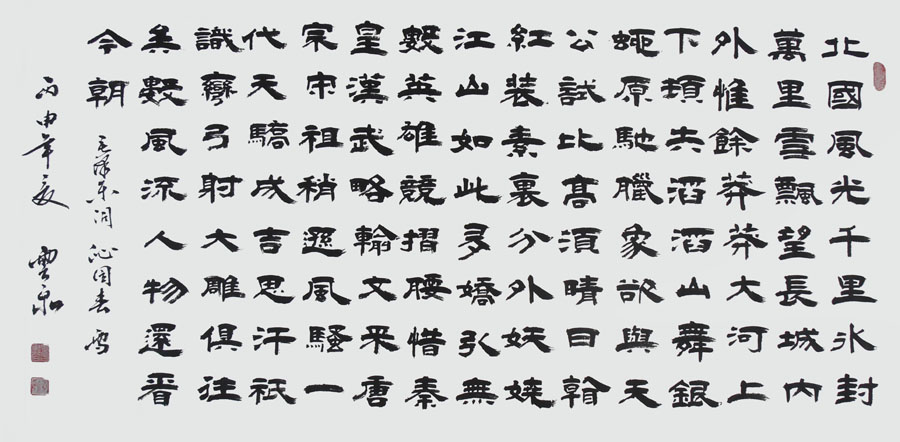 北國風光千里氷封
萬里雪飄望長城内
外惟餘莽莽大河上
下頓失滔滔山舞銀
蛇原馳臘象欲與天
公試比高須晴日看
紅裝素裹分外妖嬈
江山如此多嬌引無
數英雄競摺腰惜秦
皇漢武略輸文采唐
宗宋祖稍遜風騷一
代天驕成吉思汗衹
識彎弓射大雕俱往
矣數風流人物還看
今朝 毛澤東詞 沁園春 雪
丙申年夏 雲和